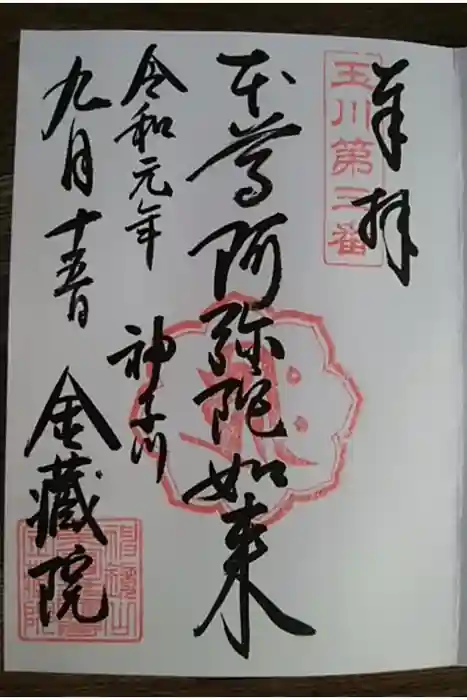 奉拝
玉川第三番
本尊阿弥陀如来
令和元年
九月十五日
神奈川
金藏院